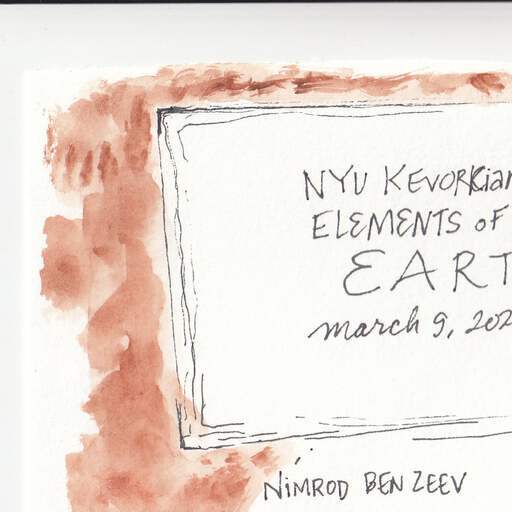 NYU KEVORKian
ELEMENTS OF
EART
march 9, 202
NIMROD BEN ZEEV